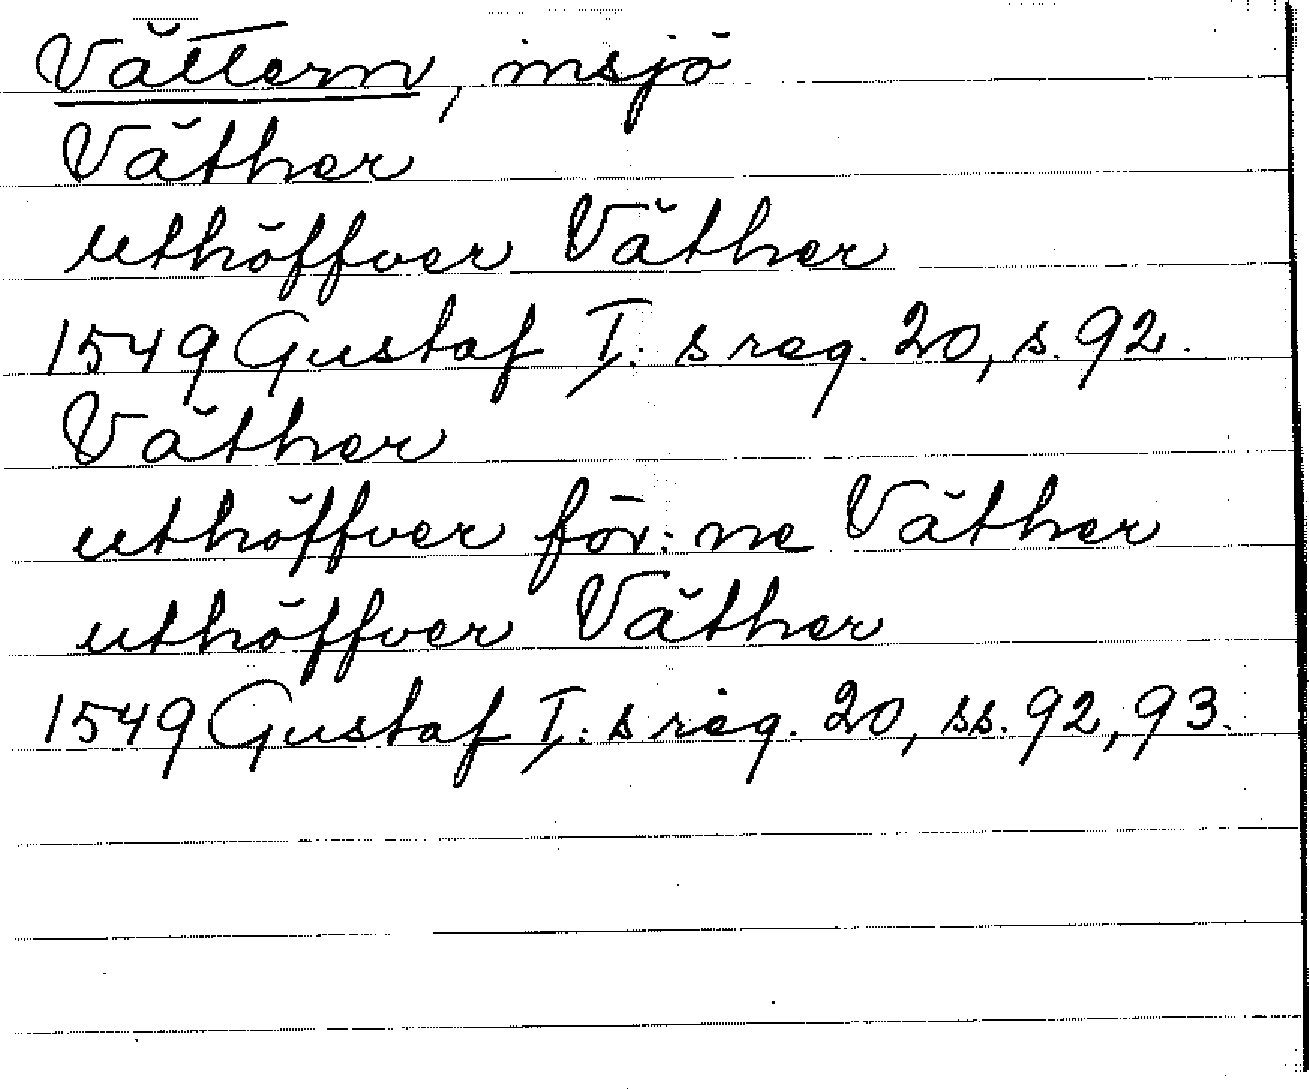 Vättern, insjö
Väther
uthöffver Väther
1549 Gustaf I:s reg. 20, s. 92.
Väther
uthöffver för:ne Väther
uthöffver Väther
1549 Gustaf I:s reg. 20, ss. 92, 93.